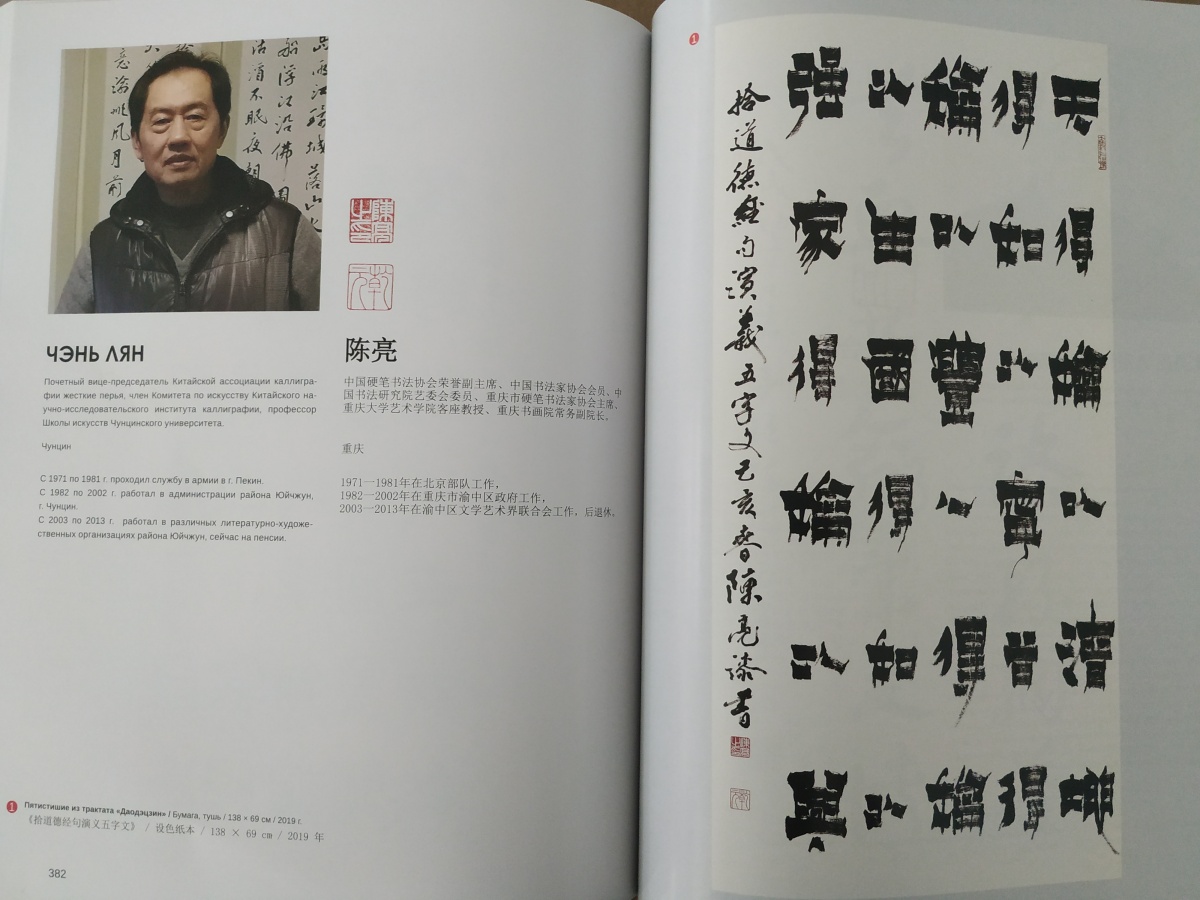 陳亮之印
ЧЭНЬ ЛЯН
Почетный вице-председатель Китайской ассоциации каллигра-
фии жесткие перья, член Комитета по искусству Китайского на-
учно-исследовательского института каллиграфии, профессор
Школы искусств Чунцинского университета.
Чунцин
С 1971 по 1981 г. проходил службу в армии в г. Пекин.
С 1982 по 2002 г. работал в администрации района Юйчжун,
г. Чунцин.
С 2003 по 2013 г. работал в различных литературно-художе-
ственных организациях района Юйчжун, сейчас на пенсии.
陈亮
中国硬笔书法协会荣誉副主席、中国书法家协会会员、中
国书法研究院艺委会委员、重庆市硬笔书法家协会主席、
重庆大学艺术学院客座教授、重庆书画院常务副院长。
重庆
1971—1981年在北京部队工作，
1982—2002年在重庆市渝中区政府工作，
2003—2013年在渝中区文学艺术界联合会工作，后退休。
1 Пятистишие из трактата «Даодэцзин» / Бумага, тушь / 138 × 69 см / 2019 г.
《拾道德经句演义五字文》 / 设色纸本 / 138 × 69 cm / 2019 年
382
1
天得以清地
得和以寧得
以豐以得
以國得和以
强家得以興
拾道德经句演義五字文己亥春陳亮漆書